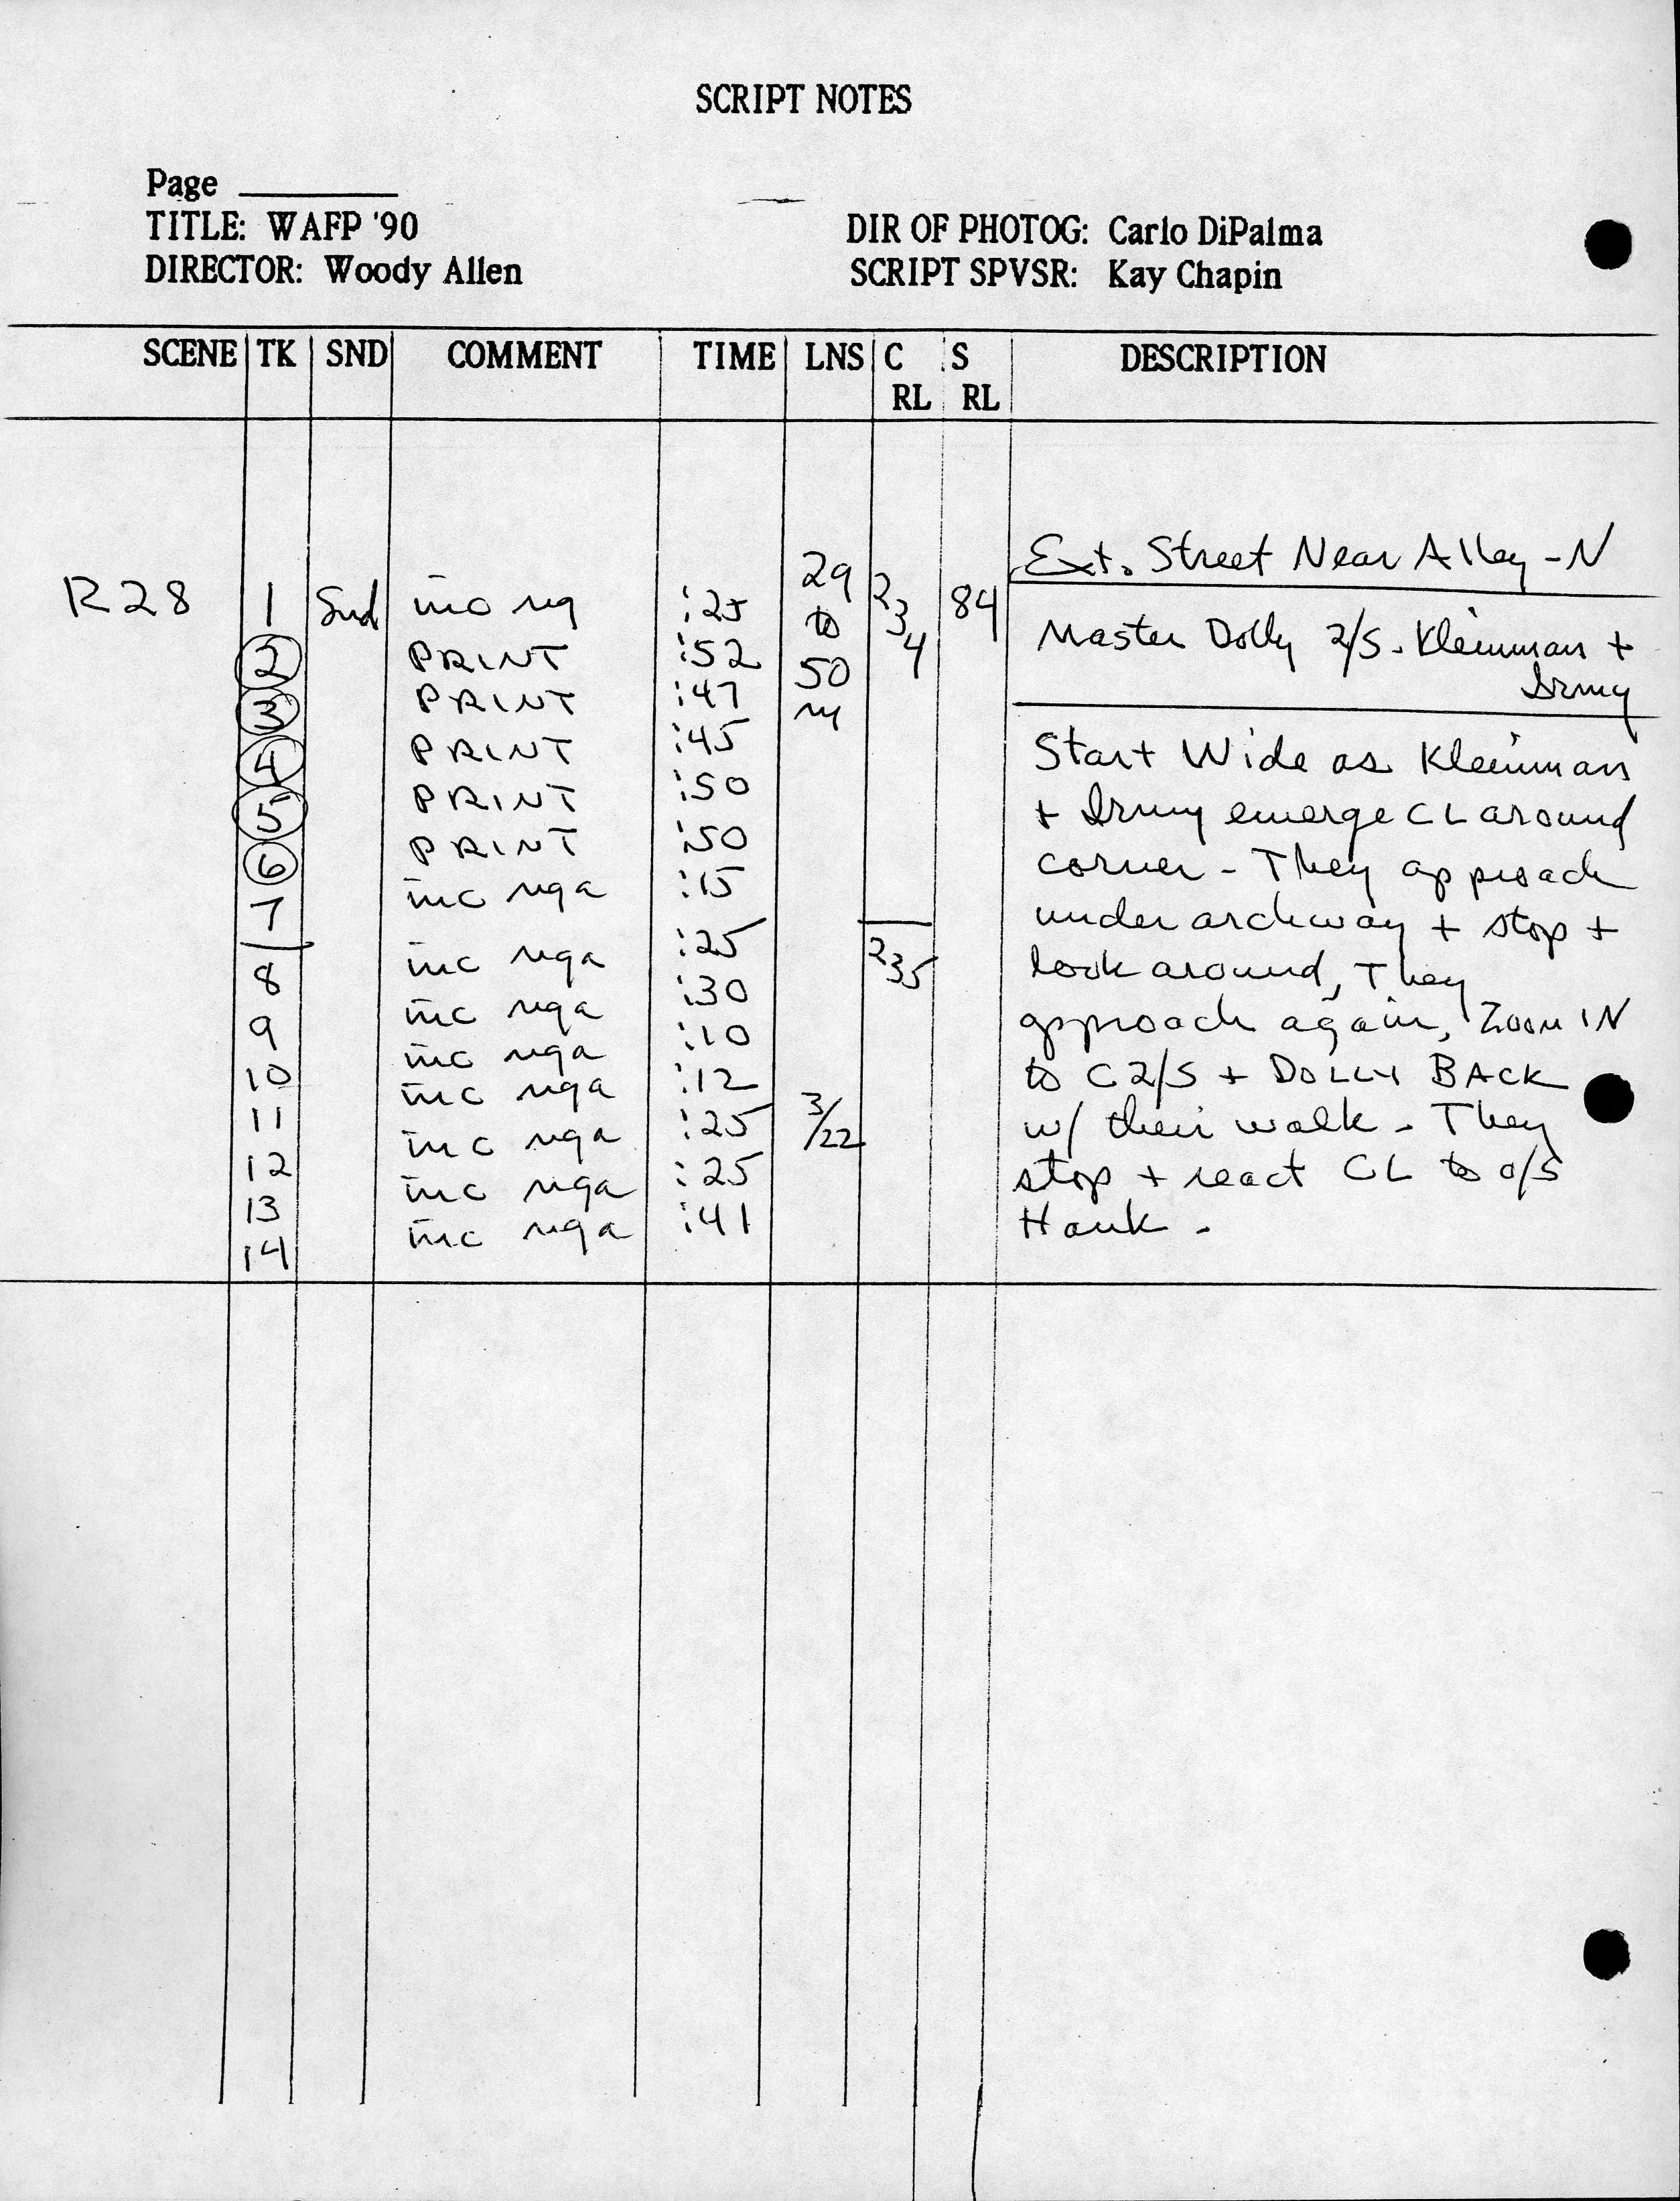 SCRIPT NOTES
Page
TITLE: WAFP '90
DIR OF PHOTOG: Carlo DiPalma
DIRECTOR: Woody Allen
SCRIPT SPVSR: Kay Chapin
SCENE TK SND COMMENT TIME LNS C RL S RL DESCRIPTION
Ext. Street Near Alley - N
R28 1 Snd inc ng :25 29 to 50 234 84
② PRINT :52
③ PRINT :47
④ PRINT :45
⑤ PRINT :50
⑥ PRINT :50
7 inc nga :15
8 inc nga :25 235
9 inc nga :30
10 inc nga :10
11 inc nga :12
12 inc nga :25 3/22
13 inc nga :25
14 inc nga :41
Master Dolly 2/S - Kleinman +
Irmy
Start Wide as Kleinman
+ Irmy emerge CL around
corner - They approach
under archway + stop +
look around, They
approach again, ZOOM IN
to C 2/S + DOLLY BACK
w/ their walk - They
stop + react CL to o/s
Hank -